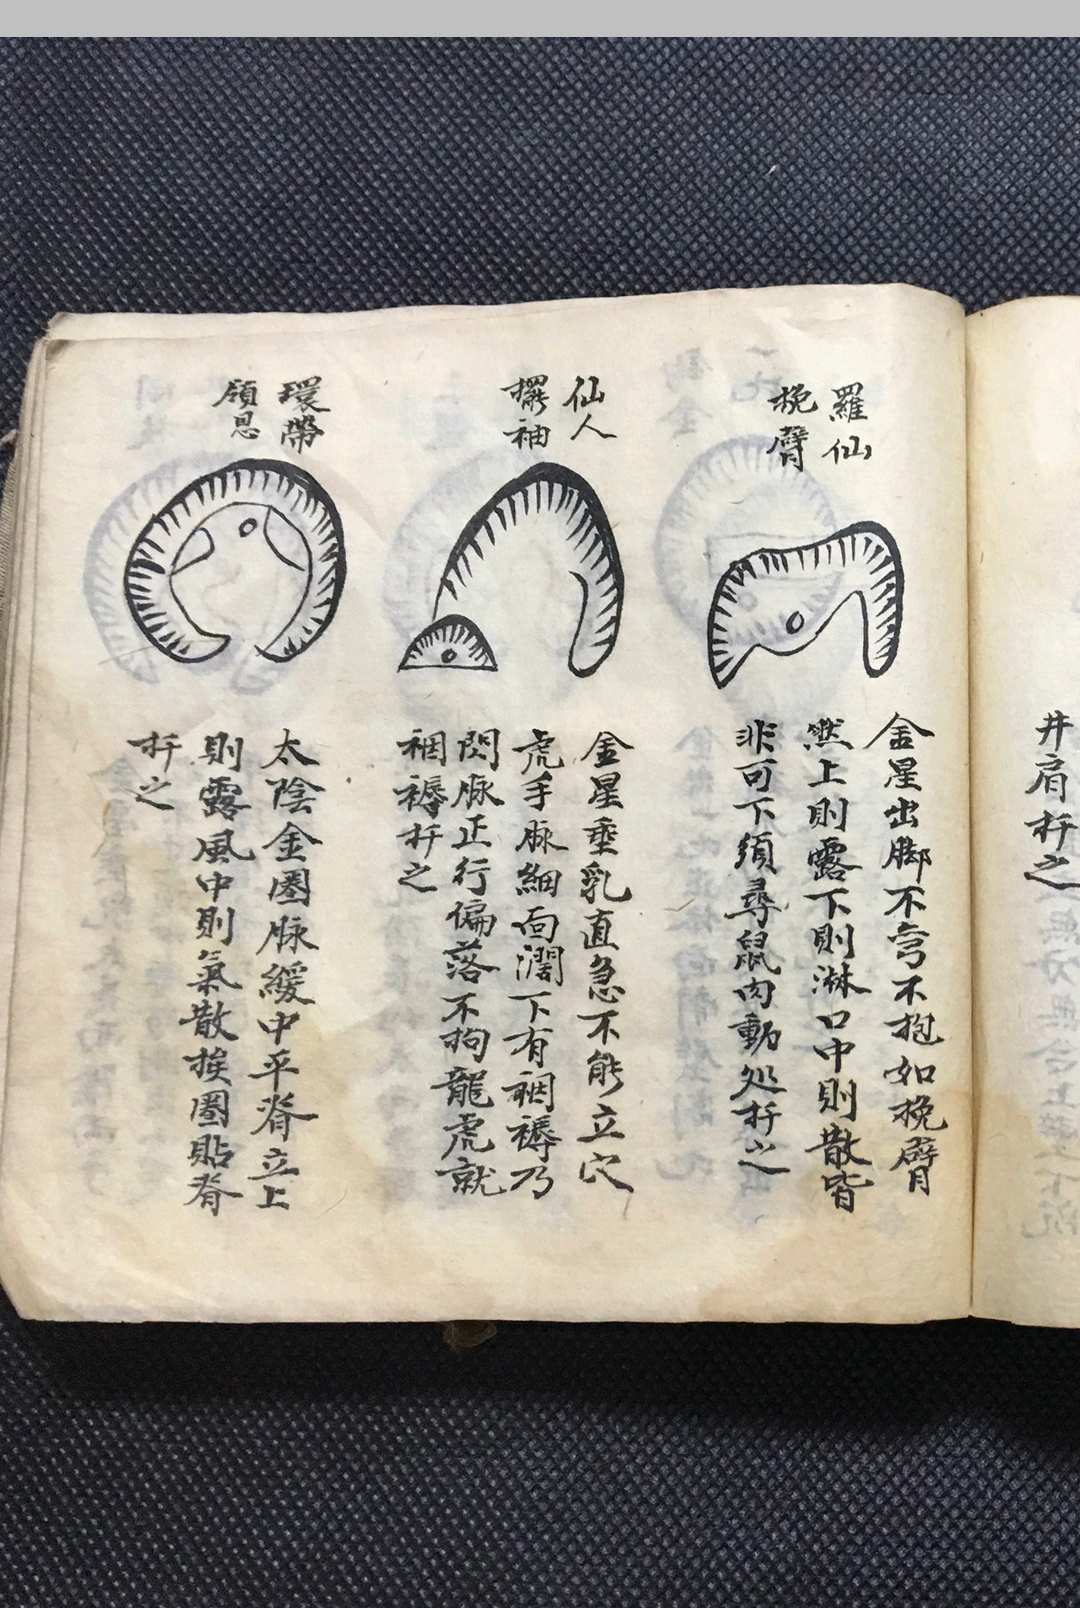 井肩扦之
羅仙
挽臂
金星出脚不弯不抱如挽臂
然上則露下則淋口中則散皆
非可下須尋鼠肉動処扦之
仙人
擺袖
金星垂乳直急不能立穴
虎手脉細面濶下有裀褥乃
閃脉正行偏落不拘龍虎就
裀褥扦之
環帶
領恩
太陰金圈脉緩中平脊立上
則露風中則氣散挨圈貼脊
扦之